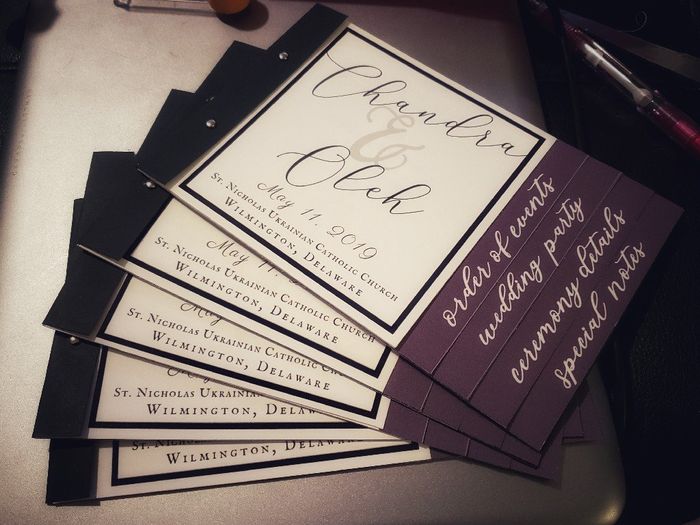 Chandra
&
Oleh
May 11, 2019
St. Nicholas Ukrainian Catholic Church
Wilmington, Delaware
order of events
wedding party
ceremony details
special notes
May 11, 2019
St. Nicholas Ukrainian Catholic Church
Wilmington, Delaware
St. Nicholas Ukrainian Catholic Church
Wilmington, Delaware
St. Nicholas Ukrainian Catholic Church
Wilmington, Delaware
St. Nicholas Ukrainian Catholic
Wilmington, Delaware